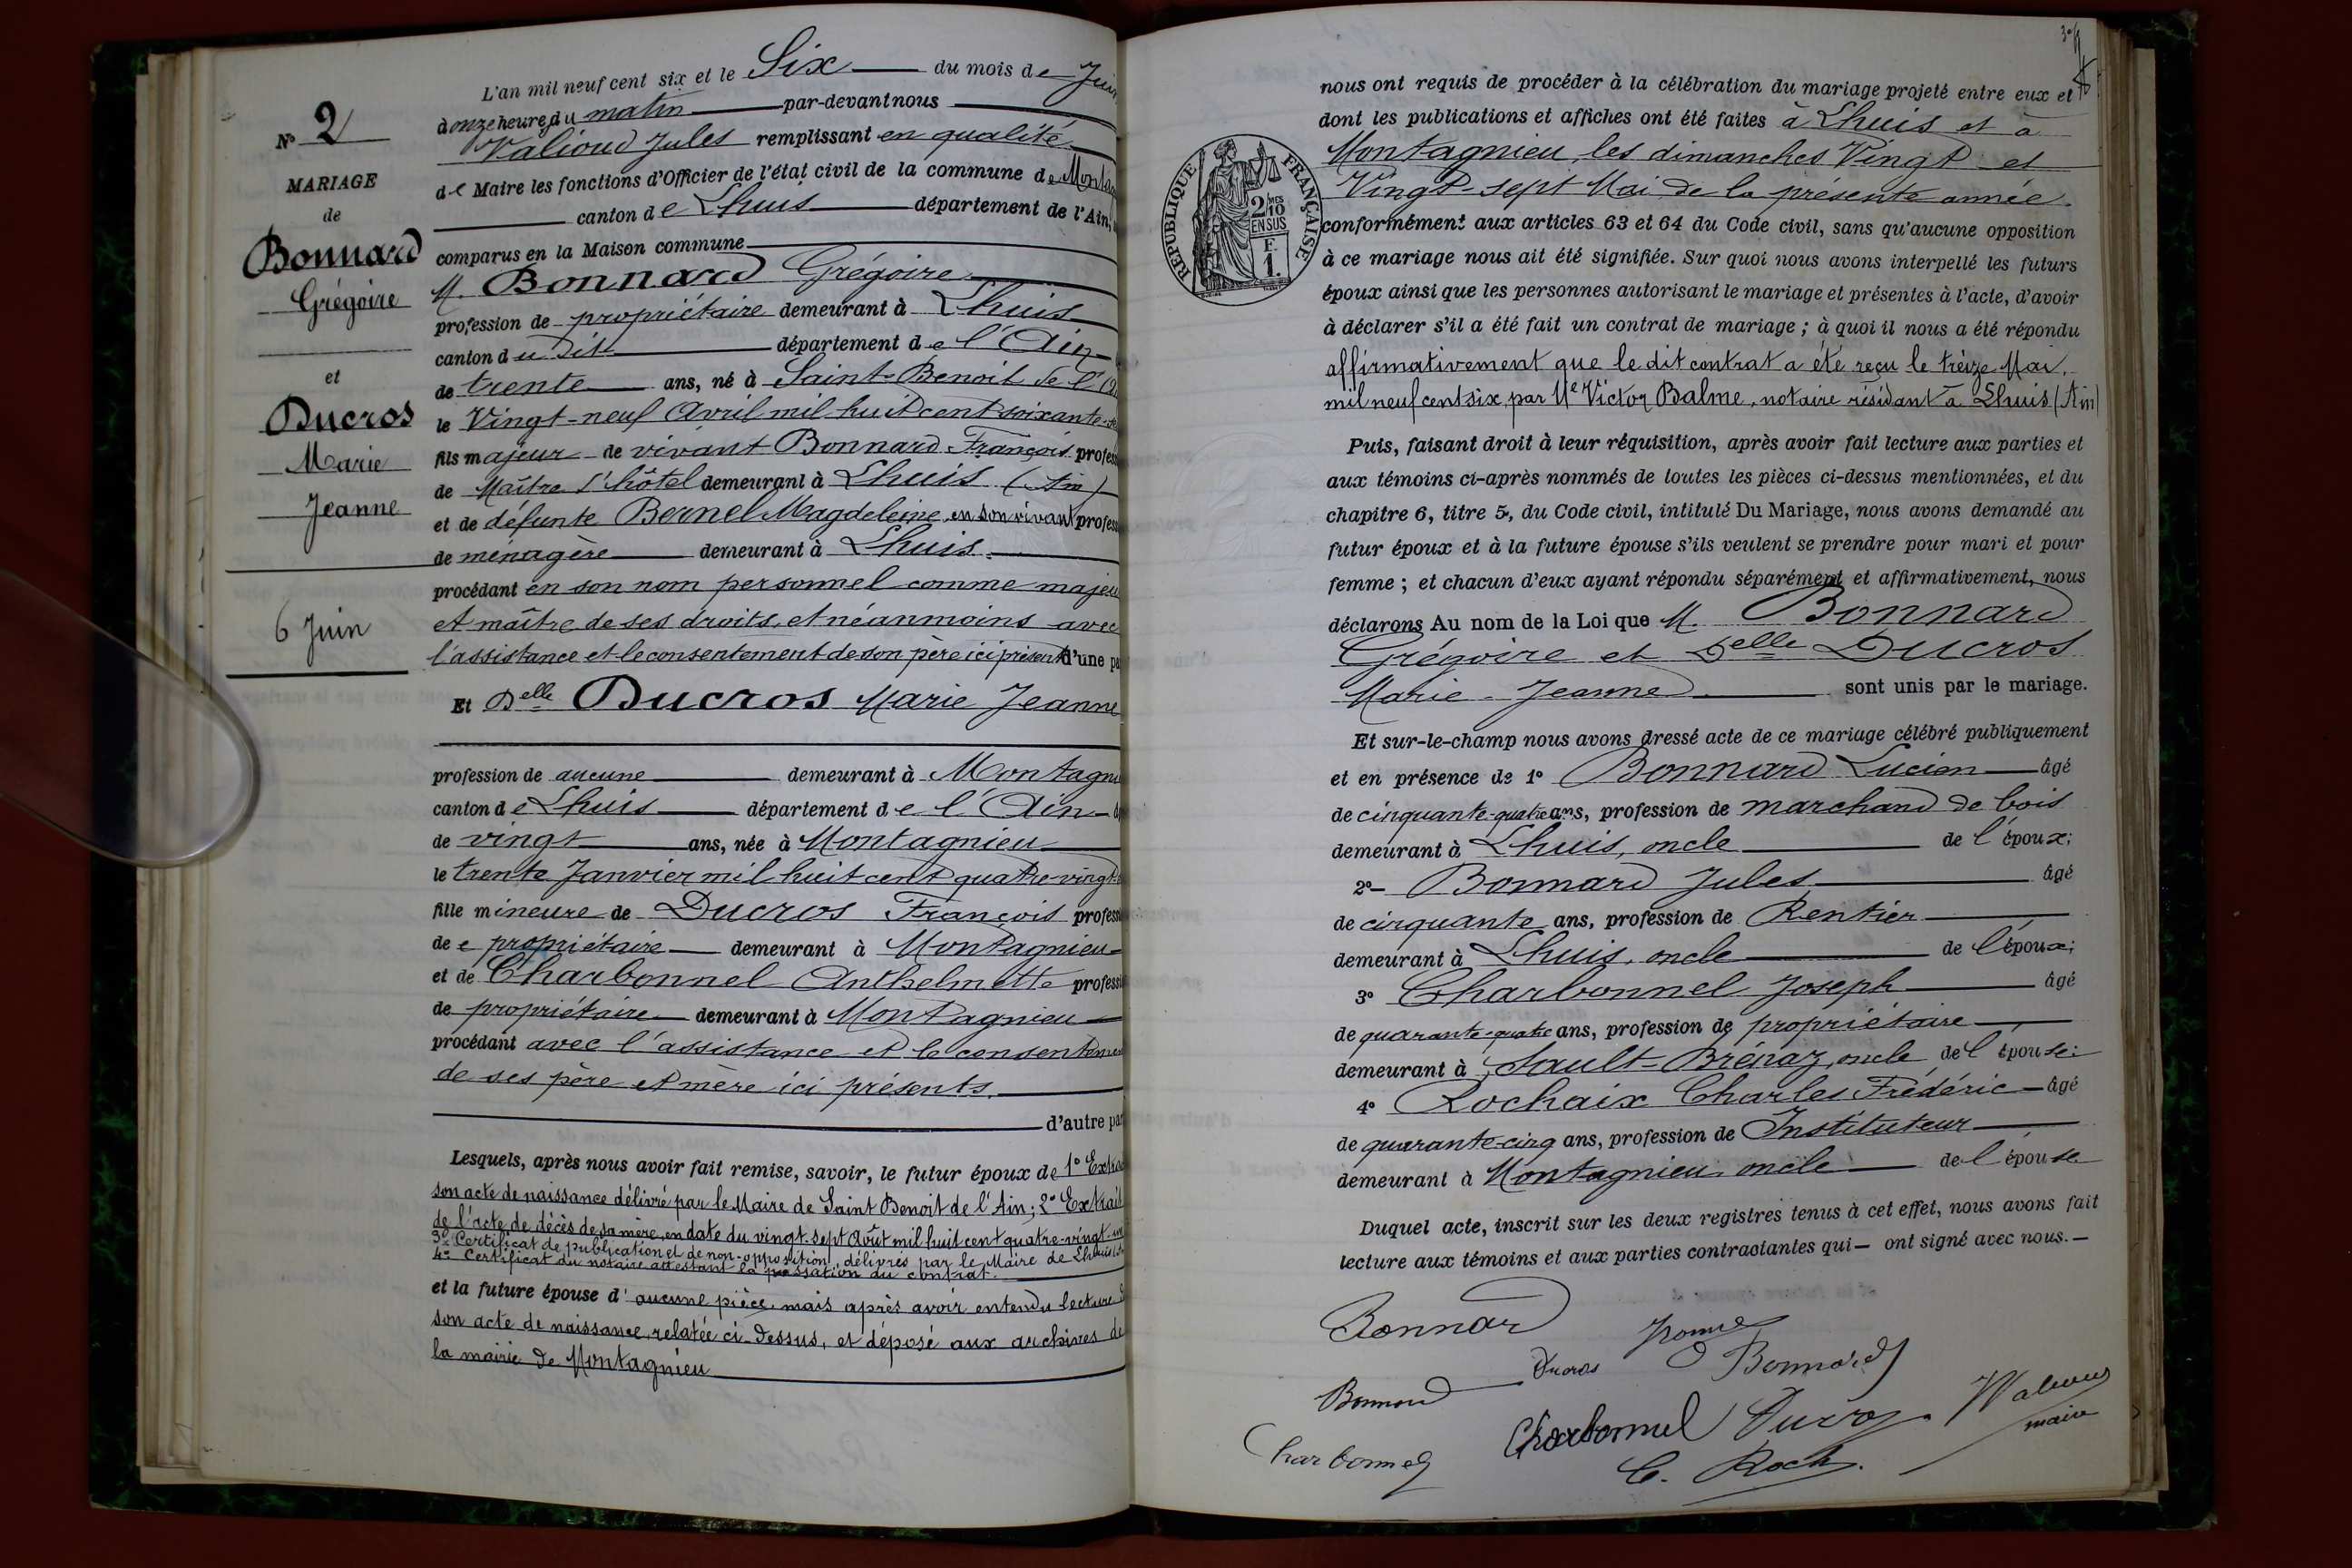 Nº 2
MARIAGE
de
Bonnard
Grégoire
et
Ducros
Marie
Jeanne
6 Juin
L'an mil neuf cent six et le Six du mois de Juin
à onze heures du matin par-devant nous
Valioud Jules remplissant en qualité
de Maire les fonctions d'Officier de l'état civil de la commune de Monta
canton de Lhuis département de l'Ain,
comparus en la Maison commune
M. Bonnard Grégoire
profession de propriétaire demeurant à Lhuis
canton du dit département de l'Ain
de trente ans, né à Saint-Benoit de l'
le Vingt-neuf Avril mil huit cent soixante-
fils majeur de vivant Bonnard François profess
de Maître d'hôtel demeurant à Lhuis (Ain)
et de défunte Bernel Magdeleine, en son vivant profess
de ménagère demeurant à Lhuis.
procédant en son nom personnel comme majeu
et maître de ses droits, et néanmoins avec
l'assistance et le consentement de son père ici présent d'une pa
Et Delle Ducros Marie Jeanne
profession de aucune demeurant à Montagni
canton de Lhuis département de l'Ain
de vingt ans, née à Montagnieu
le trente Janvier mil huit cent quatre-vingt-
fille mineure de Ducros François profess
de e propriétaire demeurant à Montagnieu
et de Charbonnel Anthelmette professi
de propriétaire demeurant à Montagnieu
procédant avec l'assistance et le consenteme
de ses père et mère ici présents.
d'autre par
Lesquels, après nous avoir fait remise, savoir, le futur époux de 1º Extra
son acte de naissance délivré par le Maire de Saint Benoit de l'Ain; 2º Extrait
de l'acte de décès de sa mère, en date du vingt-sept Août mil huit cent quatre-vingt-un
3º Certificat de publication et de non-opposition, délivrés par le Maire de Lhuis
4º Certificat du notaire attestant la passation du contrat.
et la future épouse d'aucune pièce, mais après avoir entendu lecture d
son acte de naissance, relatée ci-dessus, et déposé aux archives de
la mairie de Montagnieu
nous ont requis de procéder à la célébration du mariage projeté entre eux et
dont les publications et affiches ont été faites à Lhuis et à
Montagnieu, les dimanches Vingt et
Vingt-sept Mai de la présente année.
RÉPUBLIQUE FRANÇAISE
2 MES
10
EN SUS
F.
1.
conformément aux articles 63 et 64 du Code civil, sans qu'aucune opposition
à ce mariage nous ait été signifiée. Sur quoi nous avons interpellé les futurs
époux ainsi que les personnes autorisant le mariage et présentes à l'acte, d'avoir
à déclarer s'il a été fait un contrat de mariage ; à quoi il nous a été répondu
affirmativement que le dit contrat a été reçu le treize Mai,
mil neuf cent six, par Me Victor Balme, notaire résidant à Lhuis (Ain)
Puis, faisant droit à leur réquisition, après avoir fait lecture aux parties et
aux témoins ci-après nommés de toutes les pièces ci-dessus mentionnées, et du
chapitre 6, titre 5, du Code civil, intitulé Du Mariage, nous avons demandé au
futur époux et à la future épouse s'ils veulent se prendre pour mari et pour
femme ; et chacun d'eux ayant répondu séparément et affirmativement, nous
déclarons Au nom de la Loi que M. Bonnard
Grégoire et Delle Ducros
Marie-Jeanne sont unis par le mariage.
Et sur-le-champ nous avons dressé acte de ce mariage célébré publiquement
et en présence de 1º Bonnard Lucien âgé
de cinquante-quatre ans, profession de marchand de bois
demeurant à Lhuis, oncle de l'époux;
2º Bonnard Jules âgé
de cinquante ans, profession de Rentier
demeurant à Lhuis, oncle de l'époux;
3º Charbonnel Joseph âgé
de quarante-quatre ans, profession de propriétaire
demeurant à Sault-Brénaz, oncle de l'épouse;
4º Rochaix Charles Frédéric âgé
de quarante-cinq ans, profession de Instituteur
demeurant à Montagnieu, oncle de l'épouse
Duquel acte, inscrit sur les deux registres tenus à cet effet, nous avons fait
lecture aux témoins et aux parties contractantes qui — ont signé avec nous. —
Bonnard
Ducros
Bonnard
Bonnard
Charbonnel
Charbonnel
Ducros
maire
C. Roch